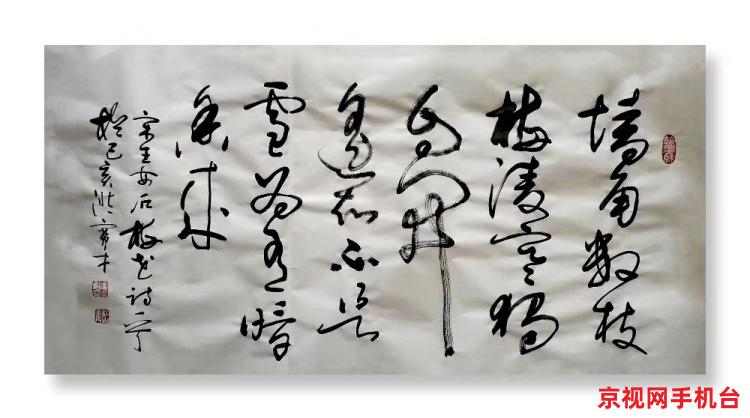 墙角数枝
梅凌寒独
自开
遥知不是
雪为有暗
香来
宋王安石梅花诗一
己亥
京视网手机台